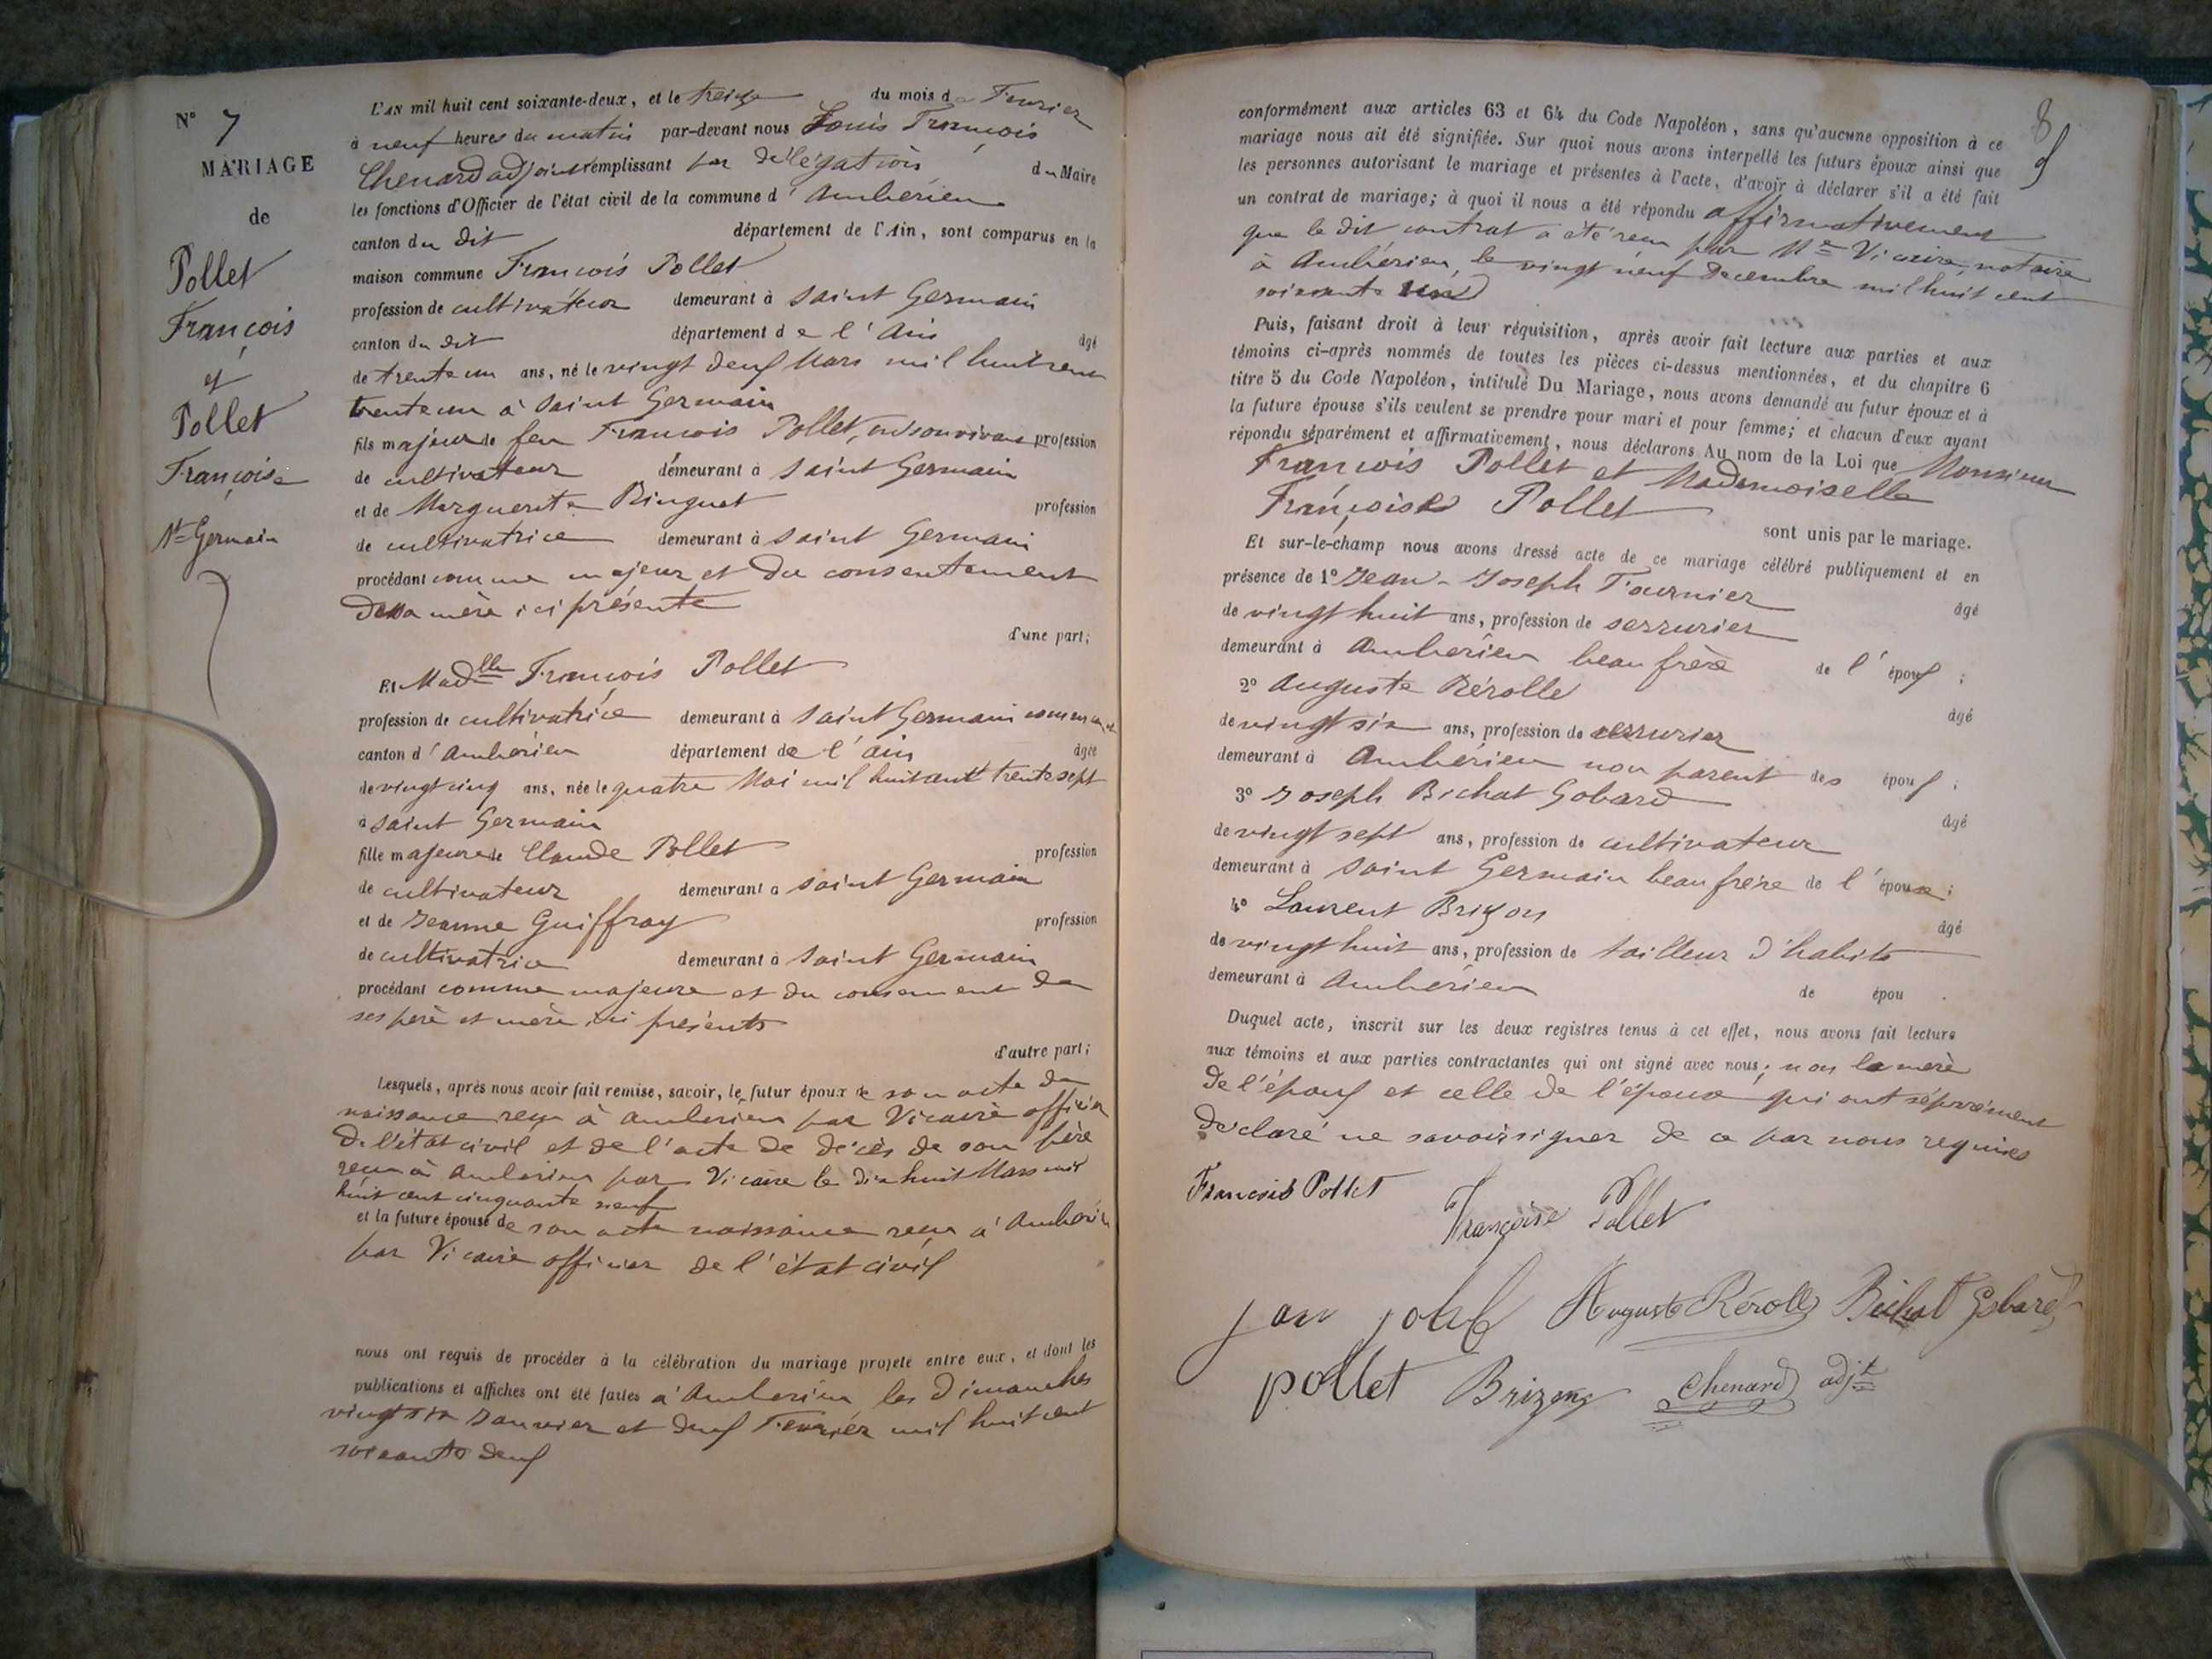 N° 7
MARIAGE
de
Pollet
François
et
Pollet
Françoise
St Germain
L'AN mil huit cent soixante-deux, et le treize du mois de Fevrier
à neuf heures du matin par-devant nous Louis François
Chenard adjoint remplissant par délégation du Maire
les fonctions d'Officier de l'état civil de la commune d'Ambérieu
canton du dit département de l'Ain, sont comparus en la
maison commune François Pollet
profession de cultivateur demeurant à Saint Germain
canton du dit département de l'Ain âgé
de trente un ans, né le vingt deux Mars mil huit cent
trente un à Saint Germain
fils majeur de feu François Pollet, en son vivant profession
de cultivateur demeurant à Saint Germain
et de Marguerite Ringuet profession
de cultivatrice demeurant à Saint Germain
procédant comme majeur et du consentement
de sa mère ici présente
d'une part;
Et Madlle François Pollet
profession de cultivatrice demeurant à Saint Germain
canton d'Ambérieu département de l'ain âgée
de vingt cinq ans, née le quatre Mai mil huit cent trente sept
à Saint Germain
fille majeure de Claude Pollet profession
de cultivateur demeurant à Saint Germain
et de Jeanne Guiffray profession
de cultivatrice demeurant à Saint Germain
procédant comme majeure et du consement de
ses père et mère ici présents
d'autre part;
Lesquels, après nous avoir fait remise, savoir, le futur époux de son acte de
naissance reçu à Ambérieu par Vicaire officier
de l'état civil et de l'acte de décès de son père
reçu à Ambérieu par Vicaire le dix huit Mars mil
huit cent cinquante neuf
et la future épouse de son acte naissance reçu à Ambérieu
par Vicaire officier de l'état civil
nous ont requis de procéder à la célébration du mariage projeté entre eux, et dont les
publications et affiches ont été faites à Ambérieu les Dimanches
vingt six Janvier et deux Fevrier mil huit cent
soixante deux
8
conformément aux articles 63 et 64 du Code Napoléon, sans qu'aucune opposition à ce
mariage nous ait été signifiée. Sur quoi nous avons interpellé les futurs époux ainsi que
les personnes autorisant le mariage et présentes à l'acte, d'avoir à déclarer s'il a été fait
un contrat de mariage; à quoi il nous a été répondu affirmativement
que le dit contrat a été reçu par Me Vicaire, notaire
à Ambérieu, le vingt neuf Decembre mil huit cent
soixante un
Puis, faisant droit à leur réquisition, après avoir fait lecture aux parties et aux
témoins ci-après nommés de toutes les pièces ci-dessus mentionnées, et du chapitre 6
titre 5 du Code Napoléon, intitulé Du Mariage, nous avons demandé au futur époux et à
la future épouse s'ils veulent se prendre pour mari et pour femme; et chacun d'eux ayant
répondu séparément et affirmativement, nous déclarons Au nom de la Loi que Monsieur
François Pollet et Mademoiselle
Françoise Pollet
sont unis par le mariage.
Et sur-le-champ nous avons dressé acte de ce mariage célébré publiquement et en
présence de 1° Jean-Joseph Fournier âgé
de vingt huit ans, profession de serrurier
demeurant à Ambérieu beau frère de l'époux;
2° Auguste Rérolle âgé
de vingt six ans, profession de serrurier
demeurant à Ambérieu non parent des époux;
3° Joseph Bichat Gobard âgé
de vingt sept ans, profession de cultivateur
demeurant à Saint Germain beau frère de l'épouse;
4° Laurent Brizon âgé
de vingt huit ans, profession de tailleur d'habits
demeurant à Ambérieu de épou .
Duquel acte, inscrit sur les deux registres tenus à cet effet, nous avons fait lecture
aux témoins et aux parties contractantes qui ont signé avec nous; non la mère
de l'époux et celle de l'épouse qui ont séparément
declaré ne savoir signer de ce par nous requises
François Pollet
Françoise Pollet
Auguste Rérolle Bichat Gobard
pollet Brizon Chenard adjt